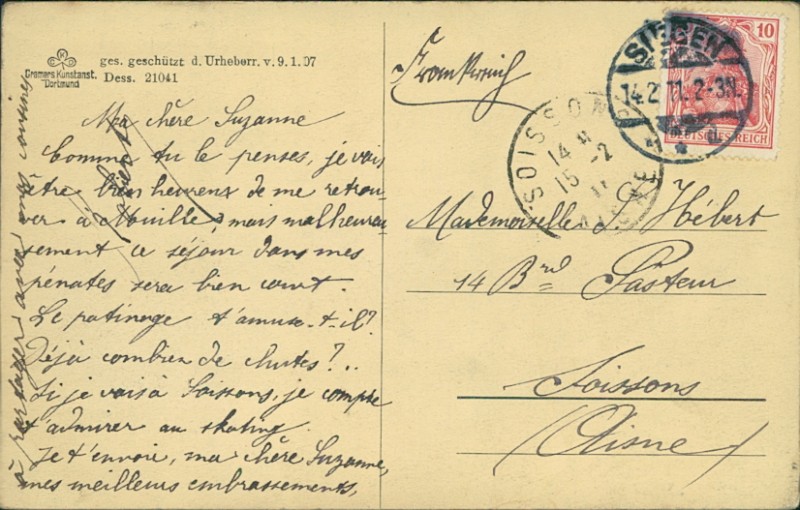 Cramers Kunstanst.
Dortmund
ges. geschützt d. Urheberr. v. 9. 1. 07
Dess. 21041
Ma chère Suzanne
Comme tu le penses, je vais
être bien heureux de me retrou-
ver à Nouille, mais malheureu-
sement ce séjour dans mes
pénates sera bien court.
Le patinage t'amuse-t-il?
Déjà combien de chutes?..
Si je vais à Soissons, je compte
t'admirer au skating.
Je t'envoie, ma chère Suzanne,
mes meilleurs embrassements,
à partager avec mes cousines
Frankreich
Mademoiselle S. Hébert
14 Brd Pasteur
Soissons
(Aisne)
10
DEUTSCHES REICH
SIEGEN
14.2.11. 2-3N.
SOISSONS
14
15 -2
11
AISNE